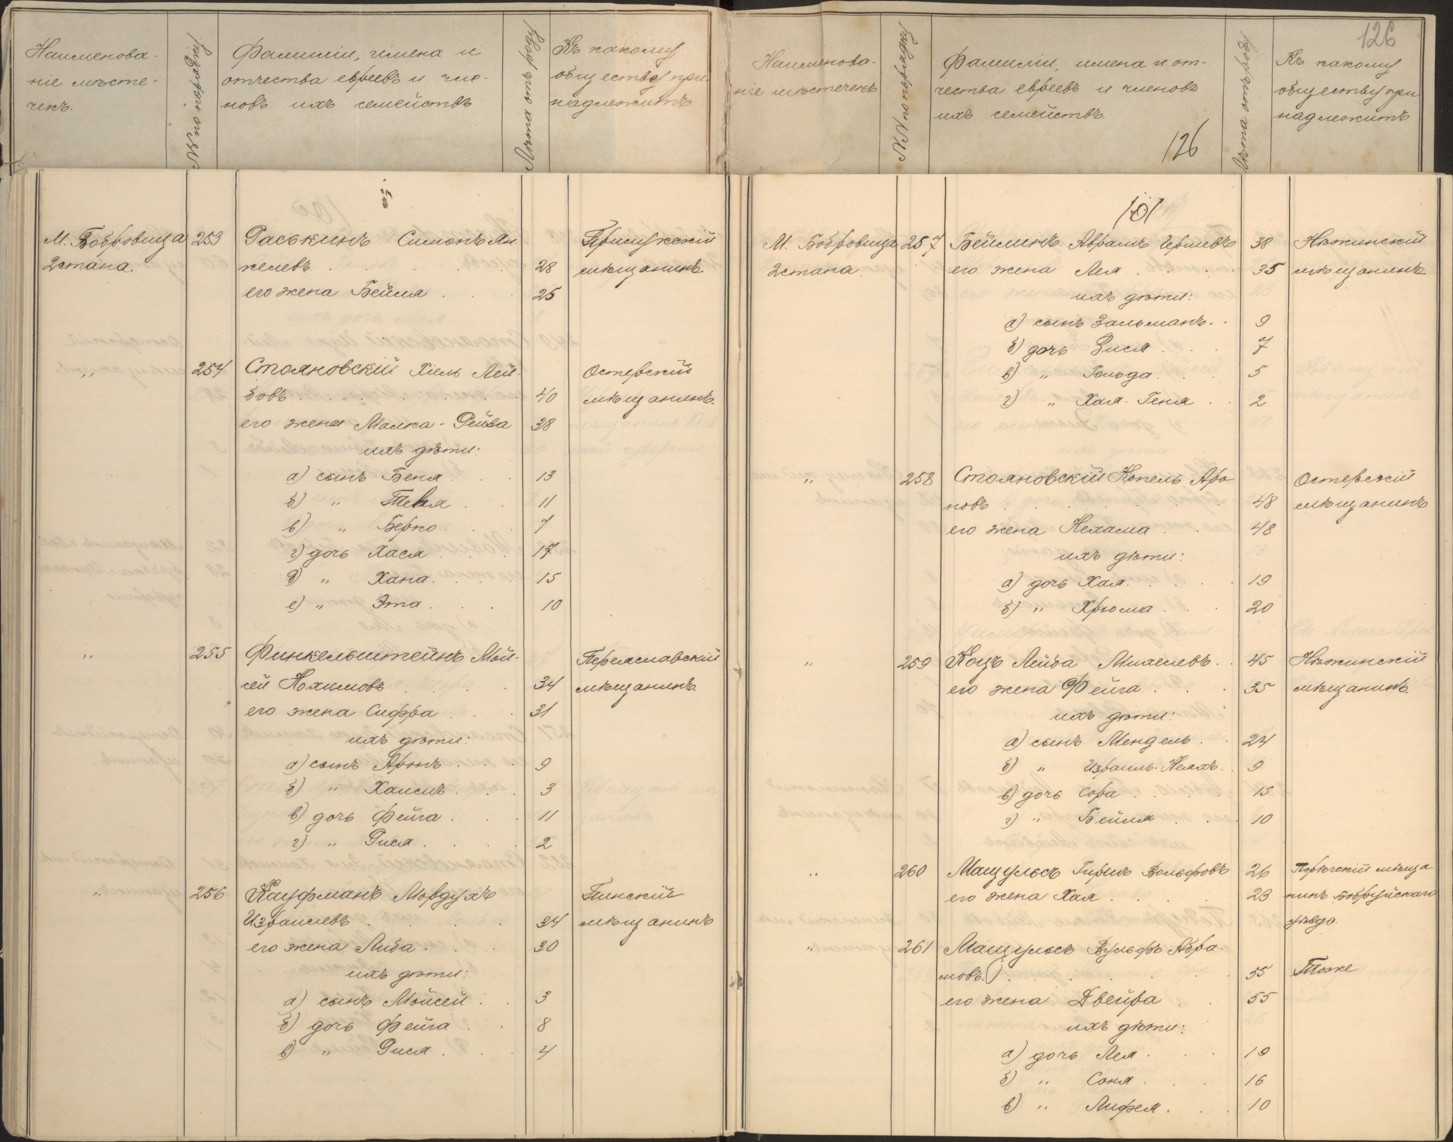 Наименова-
ніе мѣсте-
чекъ.
№№ по порядку
Фамиліи, имена и
отчества евреевъ и чле-
новъ ихъ семействъ
Лѣта отъ роду
Къ какому
обществу при-
надлежитъ
М. Бобровица 253 Раськинъ Симонъ Ян-
2 стана. келевъ 28
Прилукскій
мѣщанинъ
его жена Бейля 25
„ 254 Стояновскій Хиль Лей-
бовъ 40
Остерскій
мѣщанинъ
его жена Малка-Рейза 38
ихъ дѣти:
а) сынъ Беня 13
б) „ Тевя 11
в) „ Берко 7
г) дочь Хася 17
д) „ Хана 15
е) „ Эта 10
„ 255 Финкельштейнъ Мой-
сей Нохимовъ 34
Переяславскій
мѣщанинъ
его жена Сифра 31
ихъ дѣти:
а) сынъ Аронъ 9
б) „ Хаимъ 3
в) дочь Фейга 11
г) „ Рися 2
„ 256 Кауфманъ Мордухъ
Израилевъ 34
Пинскій
мѣщанинъ
его жена Либа 30
ихъ дѣти:
а) сынъ Мойсей 3
б) дочь Фейга 8
в) „ Рися 4
126
Наименова-
ніе мѣстечекъ
№№ по порядку
Фамиліи, имена и от-
чества евреевъ и членовъ
ихъ семействъ
126
Лѣта отъ роду
Къ какому
обществу при
надлежитъ
101
М. Бобровица 257 Бейлинъ Абрамъ 38 Нѣжинскій
2 стана его жена Лея 35 мѣщанинъ
ихъ дѣти:
а) сынъ Зальманъ 9
б) дочь Зися 7
в) „ Гольда 5
г) „ Хая-Геня 2
„ 258 Стояновскій Копель Аро
новъ 48
Остерскій
мѣщанинъ
его жена Нехама 48
ихъ дѣти:
а) дочь Хая 19
б) „ Хрюма 20
„ 259 Коцъ Лейба Михелевъ 45 Нѣжинскій
его жена Фейга 35 мѣщанинъ
ихъ дѣти:
а) сынъ Мендель 24
б) „ Израиль 9
в) дочь Сора 15
г) „ Бейля 10
„ 260 Мацульскъ Гиршъ Вольфовъ 26 мѣща
его жена Хая 23 нинъ Бобруйскаго
уѣзда
„ 261 Мацульскъ Вульфъ Абра-
мовъ 55 Тоже
его жена Двейра 55
ихъ дѣти:
а) дочь Лея 19
б) „ Соня 16
в) „ Лифея 10